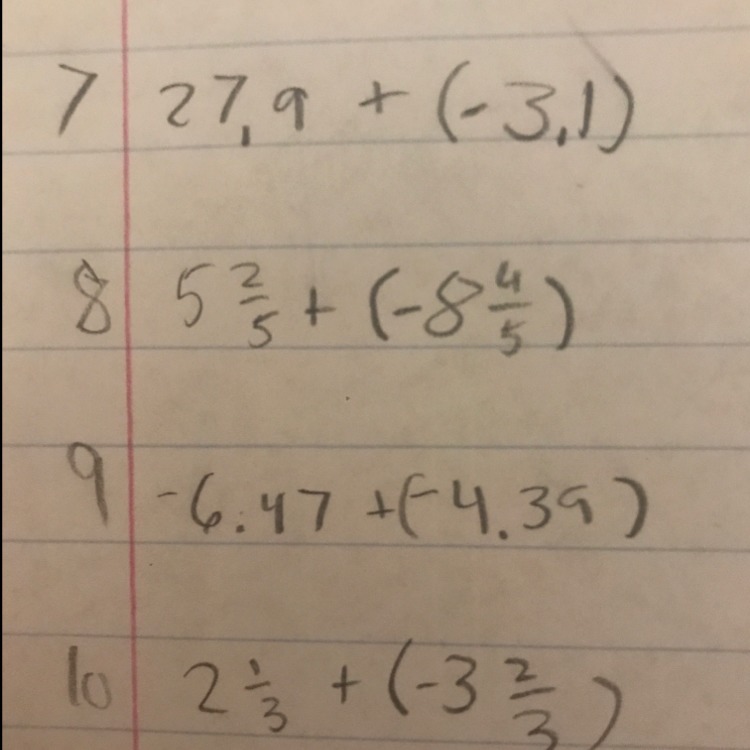 7 27,9 + (-3,1)
8 5 2/5 + (-8 4/5)
9 -6.47 +(-4.39)
10 2 1/3 + (-3 2/3)